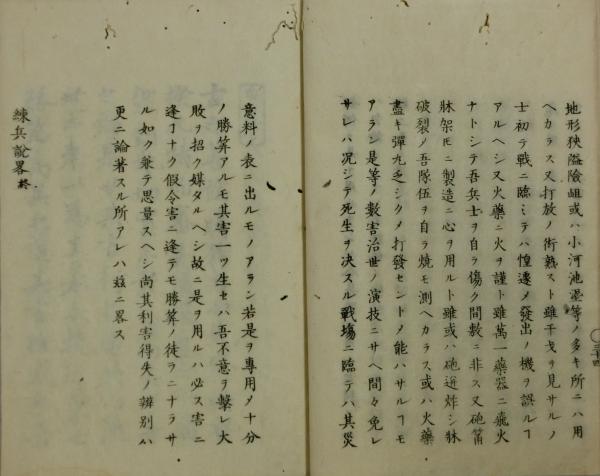 地形狹隘險岨或ハ小河池濠等ノ多キ所ニハ用
ヘカラス又打放ノ術熟スト雖干戈ヲ見サルノ
士初テ戰ニ臨ミテハ惶遽〆發出ノ機ヲ誤ルヿ
アルヘシ又火藥ニ火ヲ謹ト雖萬一藥器ニ飛火
ナトシテ吾兵士ヲ自ラ傷ク間敷ニ非ス又砲筩
牀架モニ製造ニ心ヲ用ルト雖或ハ砲迸炸シ牀
破裂〆吾隊伍ヲ自ラ燒モ測ヘカラス或ハ火藥
盡キ彈丸乏シク〆打發セント〆能ハサルヿモ
アラン是等ノ數害治世ノ演技ニサヘ間々免レ
サレハ况シテ死生ヲ决スル戰塲ニ臨テハ其災
意料ノ表ニ出ルモノアラン若是ヲ專用〆十分
ノ勝算アルモ其害一ツ生セハ吾不意ヲ擊レ大
敗ヲ招ク媒タルヘシ故ニ是ヲ用ルハ必ス害ニ
逢ヿナク假令害ニ逢テモ勝算ノ徒ラニナラサ
ル如ク兼テ思量スヘシ尚其利害得失ノ辨別ハ
更ニ論著スル所アレハ玆ニ畧ス
練兵說畧 終